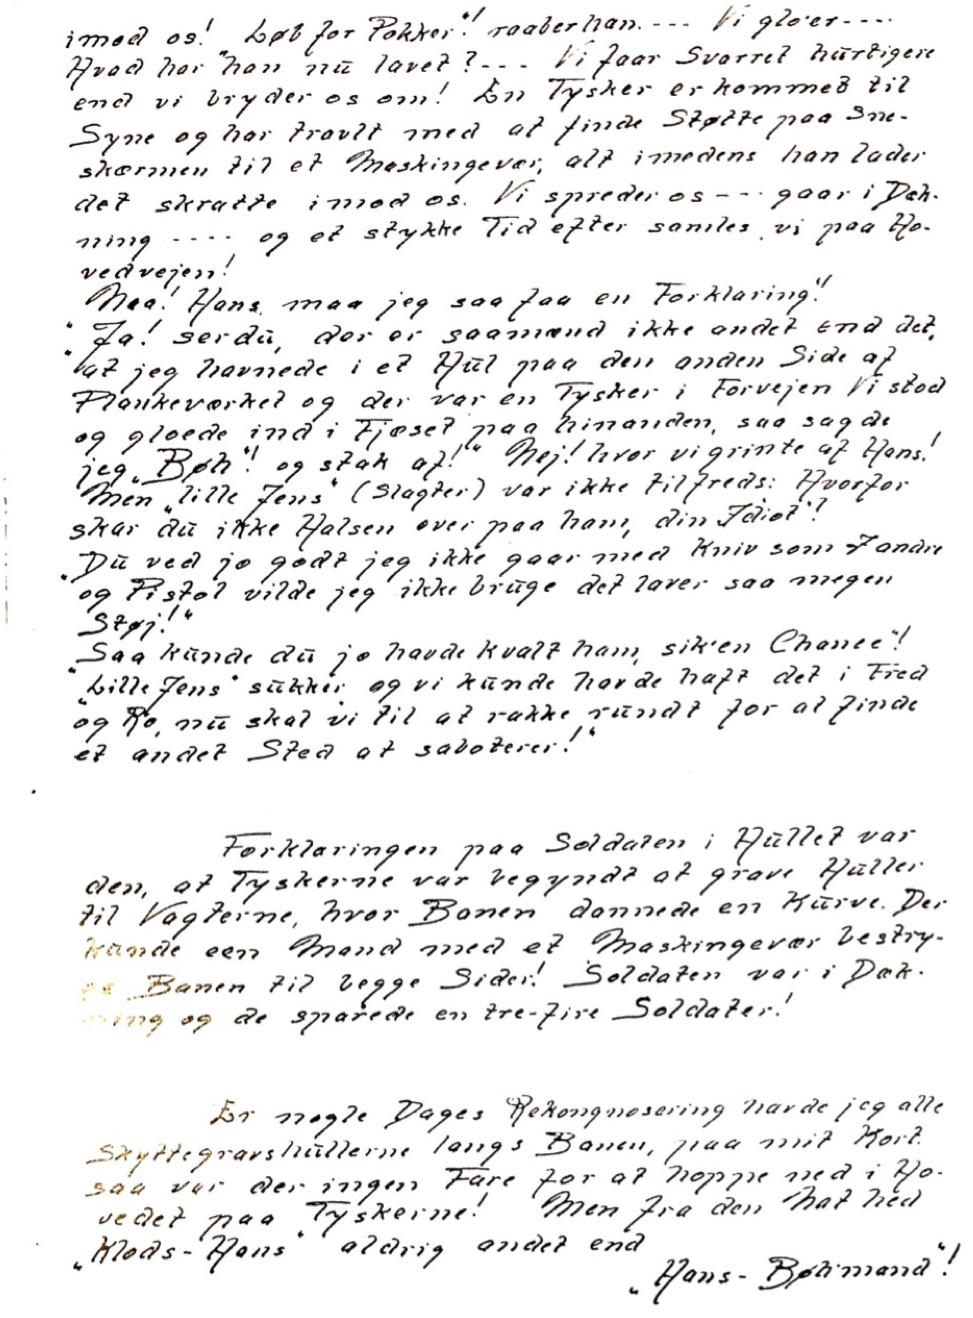 imod os! Løb for Pokker"! raaber han. --- Vi glo'er ----
Hvad har han nu lavet? --- Vi faar Svarret hurtigere
end vi bryder os om! En Tysker er kommet til
Syne og har travlt med at finde Støtte paa Sne-
skærmen til et Maskingevær, alt imedens han lader
det skratte imod os. Vi spreder os --- gaar i Dæk-
ning ---- og et stykke Tid efter samles vi paa Ho-
vedvejen!
Naa! Hans, maa jeg saa faa en Forklaring"!
"Ja! ser du, der er saamænd ikke andet end det,
"at jeg havnede i et Hul paa den anden Side af
Plankeværket og der var en Tysker i Forvejen Vi stod
og gloede ind i Fjæset paa hinanden, saa sagde
jeg "Bøh"! og stak af!" Nej! hvor vi grinte af Hans!
Men "lille Jens" (Slagter) var ikke tilfreds: Hvorfor
skar du ikke Halsen over paa ham, din Idiot"!
"Du ved jo godt jeg ikke gaar med Kniv som I andre
og Pistol vilde jeg ikke bruge det laver saa megen
Støj!"
"Saa kunde du jo havde kvalt ham, sik'en Chance"!
"Lille Jens" sukker og vi kunde havde haft det i Fred
og Ro, nu skal vi til at rakke rundt for at finde
et andet Sted at saboterer!"
Forklaringen paa Soldaten i Hullet var
den, at Tyskerne var begyndt at grave Huller
til Vagterne, hvor Banen dannede en Kurve. Der
kunde een Mand med et Maskingevær bestry-
ge Banen til begge Sider! Soldaten var i Dæk-
ning og de sparede en tre-fire Soldater!
Er nogle Dages Rekongnosering havde jeg alle
Skyttegravshullerne langs Banen, paa mit Kort
saa var der ingen Fare for at hoppe ned i Ho-
vedet paa Tyskerne! Men fra den Nat hed
"Klods-Hans" aldrig andet end
"Hans-Bøhmand"!